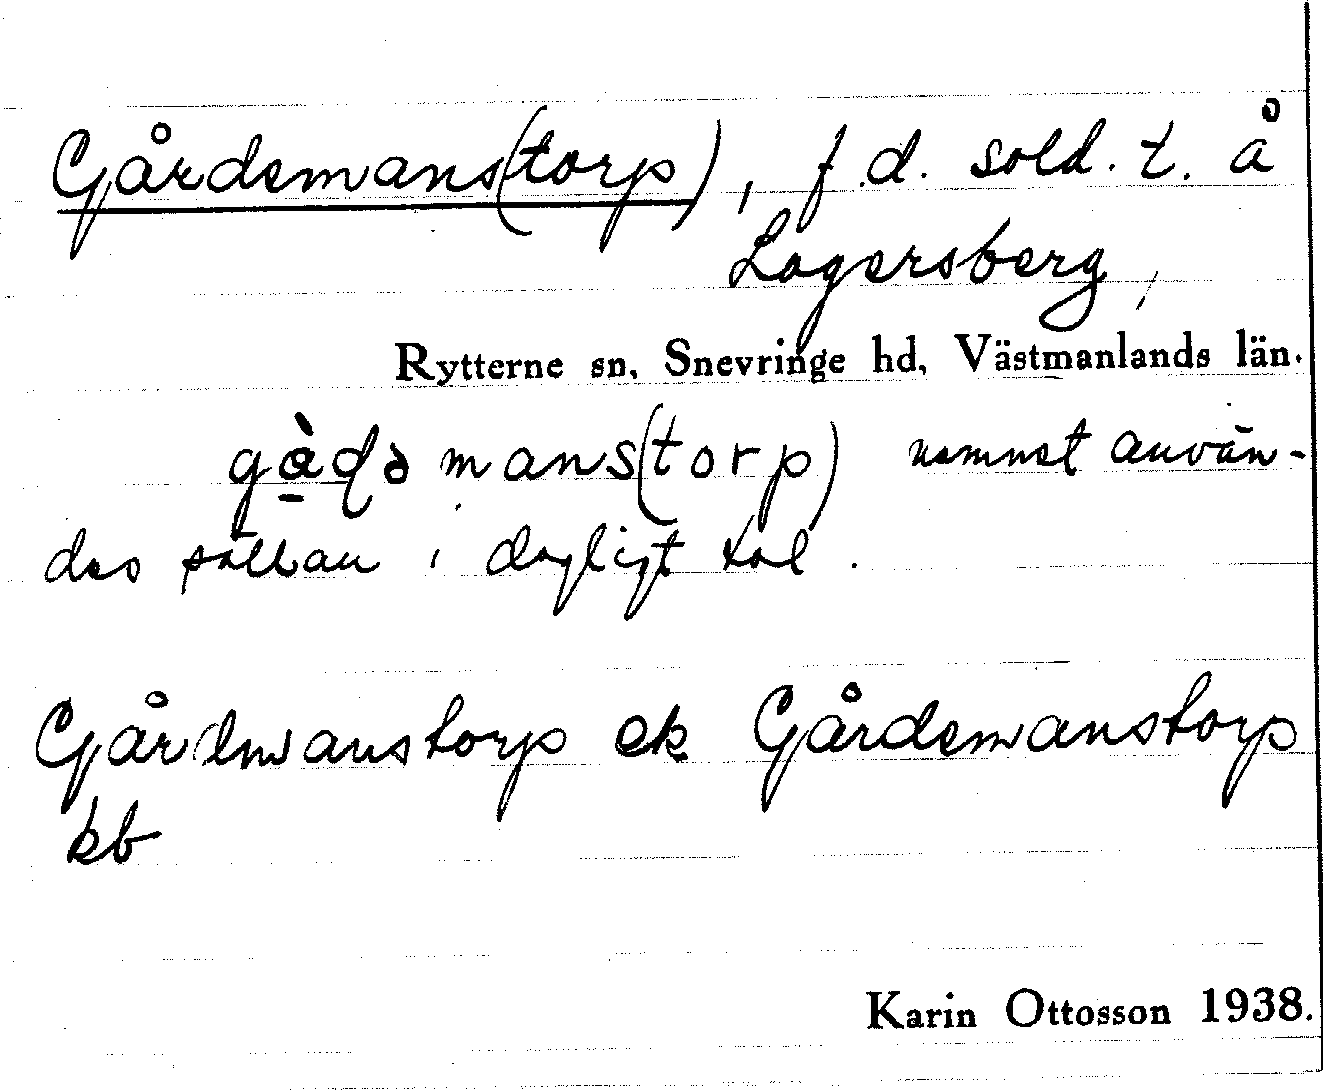 Gårdemans(torp), f.d. sold. t. å
Lagersberg,
Rytterne sn, Snevringe hd, Västmanlands län.
mans(torp) namnet använ-
das sällan i dagligt tal.
Gårdmanstorp ek Gårdemanstorp
kb
Karin Ottosson 1938.